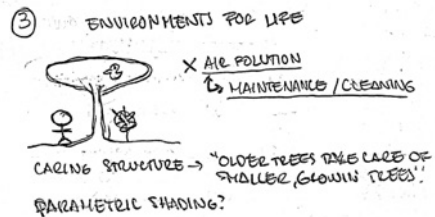 3 ENVIRONMENTS FOR LIFE
X AIR POLUTION
↳ MAINTENANCE / CLEANING
CARING STRUCTURE → "OLDER TREES TAKE CARE OF
SMALLER, GLOWIN TREES".
PARAMETRIC SHADING?